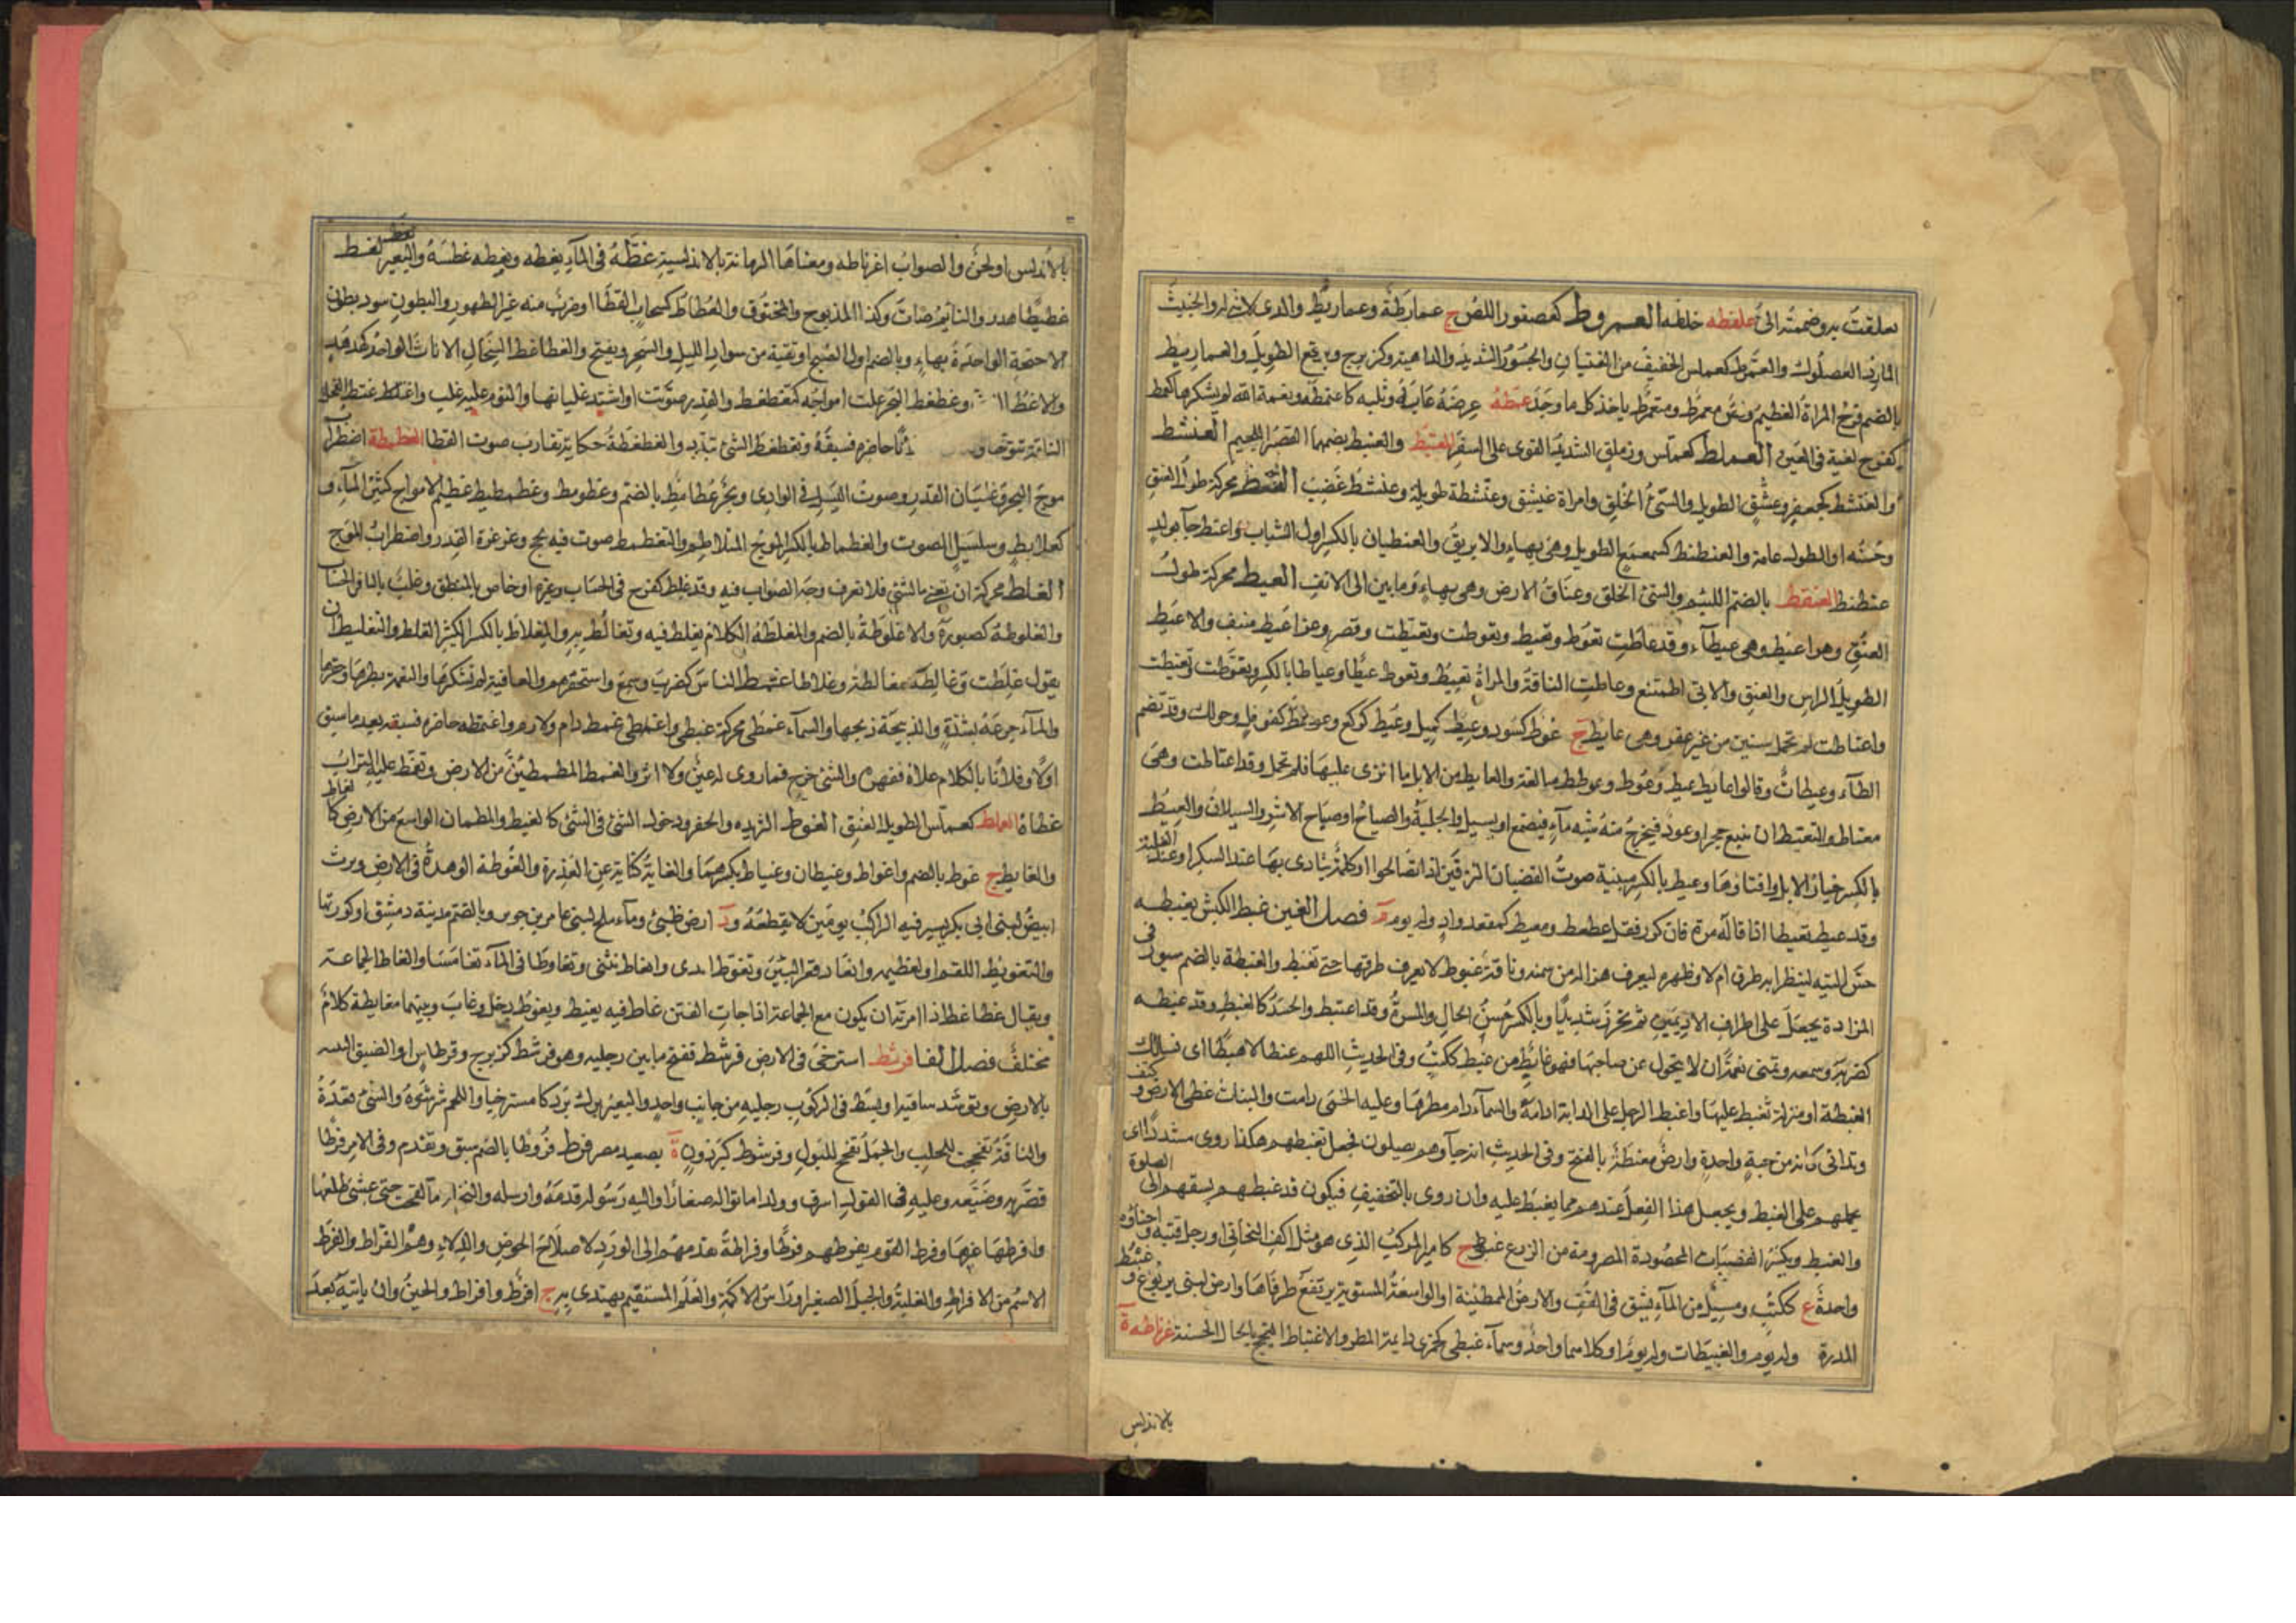 تعلقت به وضمته الى علفطه خلطه العمروط كعصفور اللص ج عمارطة وعماريط والذى لا شىء له والخبيث
المارد الصعلوك والعمرط كعملس الخفيف من الفتيان والجسور الشديد والداهية وكزبرج وبرقع الطويل والعماريط
بالضم فرج المراة العظيم ولص معمرط ومتعمرط ياخذ كل ما وجد عمطه عرضه عابه وثلبه كاعتمطه ونعمة الله لم يشكرها كغمط
كفرح لغية فى الغين العملط كعملس وزملق الشديد القوى على السفر العنبط والعنبط بضمهما القصير اللحيم العنشط
والعنشط كجعفر وعشنق الطويل والسىء الخلق وامراة عنشق وعنشطة طويلة وعنشط غضب العنط محركة طول العنق
وحسنه او الطول عامة والعنطنط كسمعمع الطويل وهى بهاء والابريق والعنطيان بالكسر اول الشباب واعنط جاء بولد
عنطنط العنقط بالضم اللئيم والسىء الخلق وعناق الارض وهى بهاء وما بين الى الانف العيط محركة طول
العنق وهو اعيط وهى عيطاء وقد عاطت تعوط وتعيط وتعوطت وتعيطت وقصر وعز اعيط منيف والاعيط
الطويل الراس والعنق والابى الممتنع وعاطت الناقة والمراة تعيط وتعوط عيطا وعياطا بالكسر وتعوطت وتعيطت
واعتاطت لم تحمل سنين من غير عقر وهى عايط ج عوط كسود وعيط كميل وعيط كركع وعوطط كقوفل وحولك وقد تضم
الطاء وعيطات وقالوا عايط عيط وعوط وعوطط مبالغة والعايط من الابل ما انزى عليها فلم تحمل وقد اعتاطت وهى
معتاط والتعيط ان ينبع حجر او عود فيخرج منه شبه ماء فيصمغ او يسيل والجلبة والصياح او صياح الاشر والسيلان والعيط
بالكسر خيار الابل وافتاؤها وعيط بالكسر مبنية صوت الفتيان النزقين اذا تصالحوا او كلمة ينادى بها عند السكر او عند الغلبة
وقد عيط تعييطا اذا قاله مرة فان كرر فقل عطعط ومعيط كمقعد واد وله يوم م فصل الغين غبط الكبش يغبطه
حس اليته لينظر ابه طرق ام لا وظهره ليعرف هزاله من سمنه وناقة غبوط لا يعرف طرقها حتى تغبط والغبطة بالضم سير فى
المزادة يجعل على اطراف الاديمين ثم يخرز شديدا وبالكسر حسن الحال والمسرة وقد اغتبط والحسد كالغبط وقد غبطه
كضربه وسمعه وتمنى نعمة ان لا يتحول عن صاحبها فهو غابط من غبط ككتب وفى الحديث اللهم غبطا لا هبطا اى نسالك
الغبطة او منزلة نغبط عليها واغبط الرحل على الدابة ادامه والسماء دام مطرها وعليه الحمى دامت والنبات غطى الارض وكثف
وتدانى كانه من حبة واحدة وارض مغبطة بالفتح وفى الحديث انه جاء وهم يصلون فجعل يغبطهم هكذا روى مشددا اى
يحملهم على الغبط ويجعل هذا الفعل عندهم مما يغبط عليه وان روى بالتخفيف فيكون قد غبطهم لسبقهم الى الصلوة
والغبط ويكسر القبضات المحصودة المصرومة من الزرع غبط ج كامير المركب الذى هو مثل اكف البخاتى او رحل قتبه واحناؤه
واحدة ع ككتب ومسيل من الماء يشق فى القف والارض المطمئنة او الواسعة المستوية يرتفع طرفاها وارض لبنى يربوع وغبيط
المدرة وله يوم والغبيطات وله يوم او كلاهما واحد وسماء غبطى كجمزى دايمة المطر والاغتباط التبجح بالحال الحسنة غرناطة د
بالاندلس
بالاندلس او لحن والصواب اغرناطه ومعناها الرمانة بالاندلسية غطه فى الماء يغطه ويغطه غطسه والبعير يغط
غطيطا هدر والنائم صات وكذا المذبوح والمخنوق والغطاط كسحاب القطا او ضرب منه غبر الظهور والبطون سود بطون
الاجنحة الواحدة بهاء وبالضم اول الصبح او بقية من سواد الليل والسحر ويفتح والغطاغط السخال الاناث الواحد كهدهد
والاغط وغطغط البحر علت امواجه كتغطغط والقدر صوتت او اشتد غليانها والنوم عليه غلب واغتط اغتط الفحل
الناقة تنوخها و حاضره فسبقه وتغطغط الشىء تبدد والغطغطة حكاية تقارب صوت القطا الغطمطة اضطراب
موج البحر وغليان القدر وصوت السيل فى الوادى وبحر غطامط بالضم وغطومط وغطمطيط عظيم الامواج كثير الماء و
كعلابط وسلسبيل الصوت والغطماط بالكسر الموج المتلاطم والتغطمط صوت فيه بحح وغرغرة القدر واضطراب الموج
الغلط محركة ان تعيا بالشىء فلا تعرف وجه الصواب فيه وقد غلط كفرح فى الحساب وغيره او خاص بالمنطق وغلت بالتا فى الحساب
والغلوطة كصبورة والاغلوطة بالضم والمغلطة الكلام يغلط فيه ويغالط به والمغلاط بالكسر الكثير الغلط والتغليط ان
يقول غلطت وغالطه مغالطة وغلاطا غمط الناس كضرب وسمع واستحقرهم والعافية لم يشكرها والنعمة بطرها وحقرها
والماء جرعه بشدة والذبيحة ذبحها والسماء غمطى محركة غبطى واغمط دام ولازم واغتمطه حاضره فسبقه بعد ما سبق
اولا وفلانا بالكلام علاه فقهره والشىء خرج فما روى له عين ولا اثر والغمط المطمئن من الارض وتغمط عليه التراب
غطاه العملط كعملس الطويل العنق الغوط الثريدة والحفر ودخول الشىء فى الشىء كالغيط والمطمان الواسع من الارض كالغاط
والغايط ج غوط بالضم واغواط وغيطان وغياط بكسرهما والغايط كناية عن العذرة والغوطة الوهدة فى الارض وبرث
ابيض لبنى ابى بكر يسير فيه الراكب يومين لا يقطعه ود ارض طيئ وماء ملح لبنى عامر بن جوين وبالضم مدينة دمشق او كورتها
والتغويط اللقم او تعظيمه وابعاد قعر البئر وتغوط ابدى وانغاط تثنى وتغاوطا فى الماء تغامسا والغاط الجماعة
ويقال غط غط اذا امرته ان يكون مع الجماعة اذا جاءت الفتن غاط فيه يغيط ويغوط دخل وغاب وبينهما مغايطة كلام
مختلف فصل الفا فرشط استرخى فى الارض فرشط قعد ففتح ما بين رجليه وهو فرشط كزبرج وقرطاس او الصق اليتيه
بالارض وتوسد ساقيه او بسط فى الركوب رجليه من جانب واحد والبعير برك بروكا مسترخيا واللحم شرشره والشىء مده
والناقة تفحجت للحلب والجمل تفحج للبول وفرشوط كبرذون ة بصعيد مصر فرط فروطا بالضم سبق وتقدم وفى الامر فرطا
قصر به وضيعه وعليه فى القول اسرف وولدا ماتوا له صغارا واليه رسوله قدمه وارسله والنخل تركها حتى عشى طلعها
وافرطها غيرها وفرط القوم يفرطهم فرطا وفراطة تقدمهم الى الورد لاصلاح الحوض والدلاء وهم الفراط والفرط
الاسم من الافراط والغلبة والجبل الصغير او راس الاكمة والعلم المستقيم يهتدى به ج افرط وافراط والحين وان ياتيه بعد